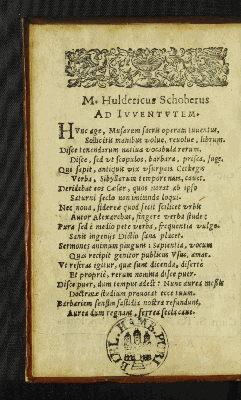 M. Huldericus Schoberus
AD IVVENTVTEM.
HVnc age, Musarum sacris operam iuuentus,
Sollicitis manibus volue, reuolue, librum.
Disce tenendarum natiua vocabula rerum.
Disce, sed vt scopulos, barbara, prisca, fuge.
Quæ sapit, antiquis vix vsurpata Cethegis
Verba, Sibyllarum tempore nata, cauet.
Deridebat eos Cæsar, quos norat ab ipso
Saturni seclo non imitanda loqui.
Nec noua, sidereas quod fecit scilicet vrbis
Autor Alexarchus, fingere verba stude:
Pura sed è medio pete verba, frequentia vulgo.
Sanis ingenijs Dictio sana placet.
Sermones animum pingunt: Sapientia, vocum
Quas recipit genitor publicus Vsus, amat.
Vt referas igitur, quæ sunt dicenda, disertè
Et propriè, rerum nomina disce puer.
Disce puer, dum tempus adest: Nunc aurea messis
Doctrinæ studium prouocat ecce tuum.
Barbariem sensim fastidia nostra refundunt,
Aurea dum regnant, ferrea secla cane.
BIBL. HAMB. PVBL.